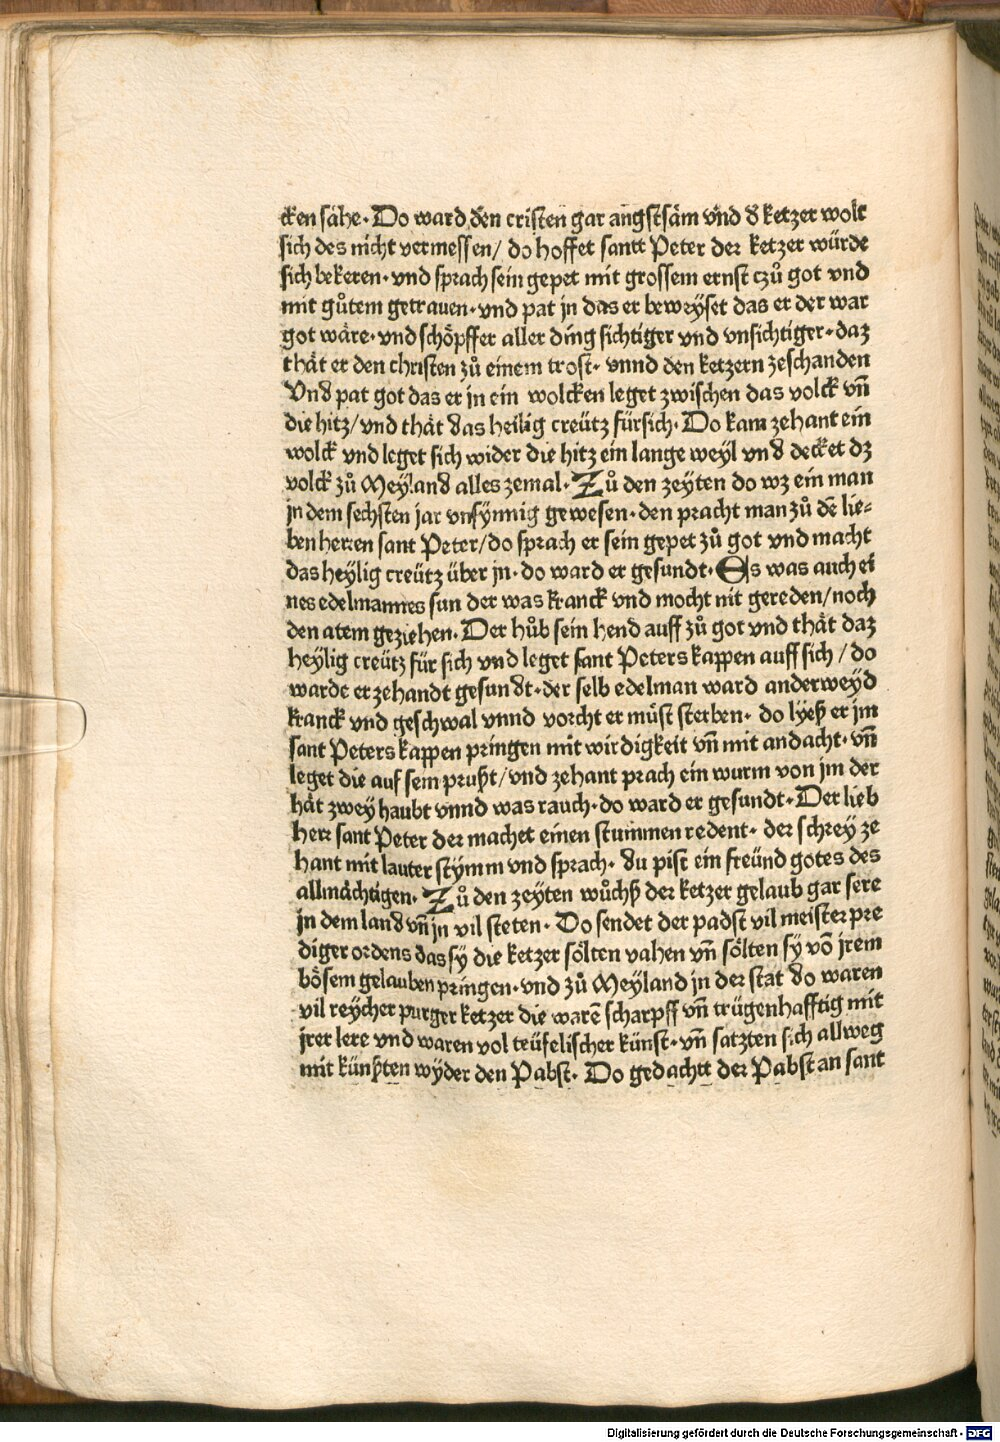 cken sähe. Do ward den cristen gar angstsam vnd d ketzer wolt
sich des nicht vermessen/ do hoffet santt Peter der ketzer würde
sich bekeren. vnd sprach sein gepet mit grossem ernst czů got vnd
mit gůtem getrauen. vnd pat jn das er beweyset das er der war
got wäre. vnd schöpffer aller ding sichtiger vnd vnsichtiger. daz
thät er den christen zů einem trost. vnnd den ketzern zeschanden
Vnd pat got das er jn ein wolcken leget zwischen das volck vn̄
die hitz/ vnd thät das heilig creütz fürsich. Do kam zehant ein
wolck vnd leget sich wider die hitz ein lange weyl vnd decket dz
volck zů Meyland alles zemal. Zů den zeyten do wz ein man
jn dem sechsten jar vnsynnig gewesen. den pracht man zů dē lie⸗
ben herren sant Peter/ do sprach er sein gepet zů got vnd macht
das heylig creütz über jn. do ward er gesundt. Es was auch ei
nes edelmannes sun der was kranck vnd mocht nit gereden/ noch
den atem geziehen. Der hůb sein hend auff zů got vnd thät daz
heylig creütz für sich vnd leget sant Peters kappen auff sich / do
warde er zehandt gesundt. der selb edelman ward anderweyd
kranck vnd geschwal vnnd vorcht er můst sterben. do lyeß er jm
sant Peters kappen pringen mit wirdigkeit vn̄ mit andacht. vn̄
leget die auf sein prußt/ vnd zehant prach ein wurm von jm der
hät zwey haubt vnnd was rauch. do ward er gesundt. Der lieb
herr sant Peter der machet einen stummen redent. der schrey ze
hant mit lauter stymm vnd sprach. du pist ein freünd gotes des
allmächtigen. Zů den zeyten wůchß der ketzer gelaub gar sere
jn dem land vn̄ jn vil steten. Do sendet der padst vil meister pre
diger ordens das sy die ketzer sölten vahen vn̄ sölten sy vō jrem
bösem gelauben pringen. vnd zů Meyland jn der stat do waren
vil reycher purger ketzer die warē scharpff vn̄ trügenhafftig mit
jrer lere vnd waren vol teüfelischer künst. vn̄ satzten sich allweg
mit künßten wyder den Pabst. Do gedachtt der Pabst an sant
Digitalisierung gefördert durch die Deutsche Forschungsgemeinschaft - DFG